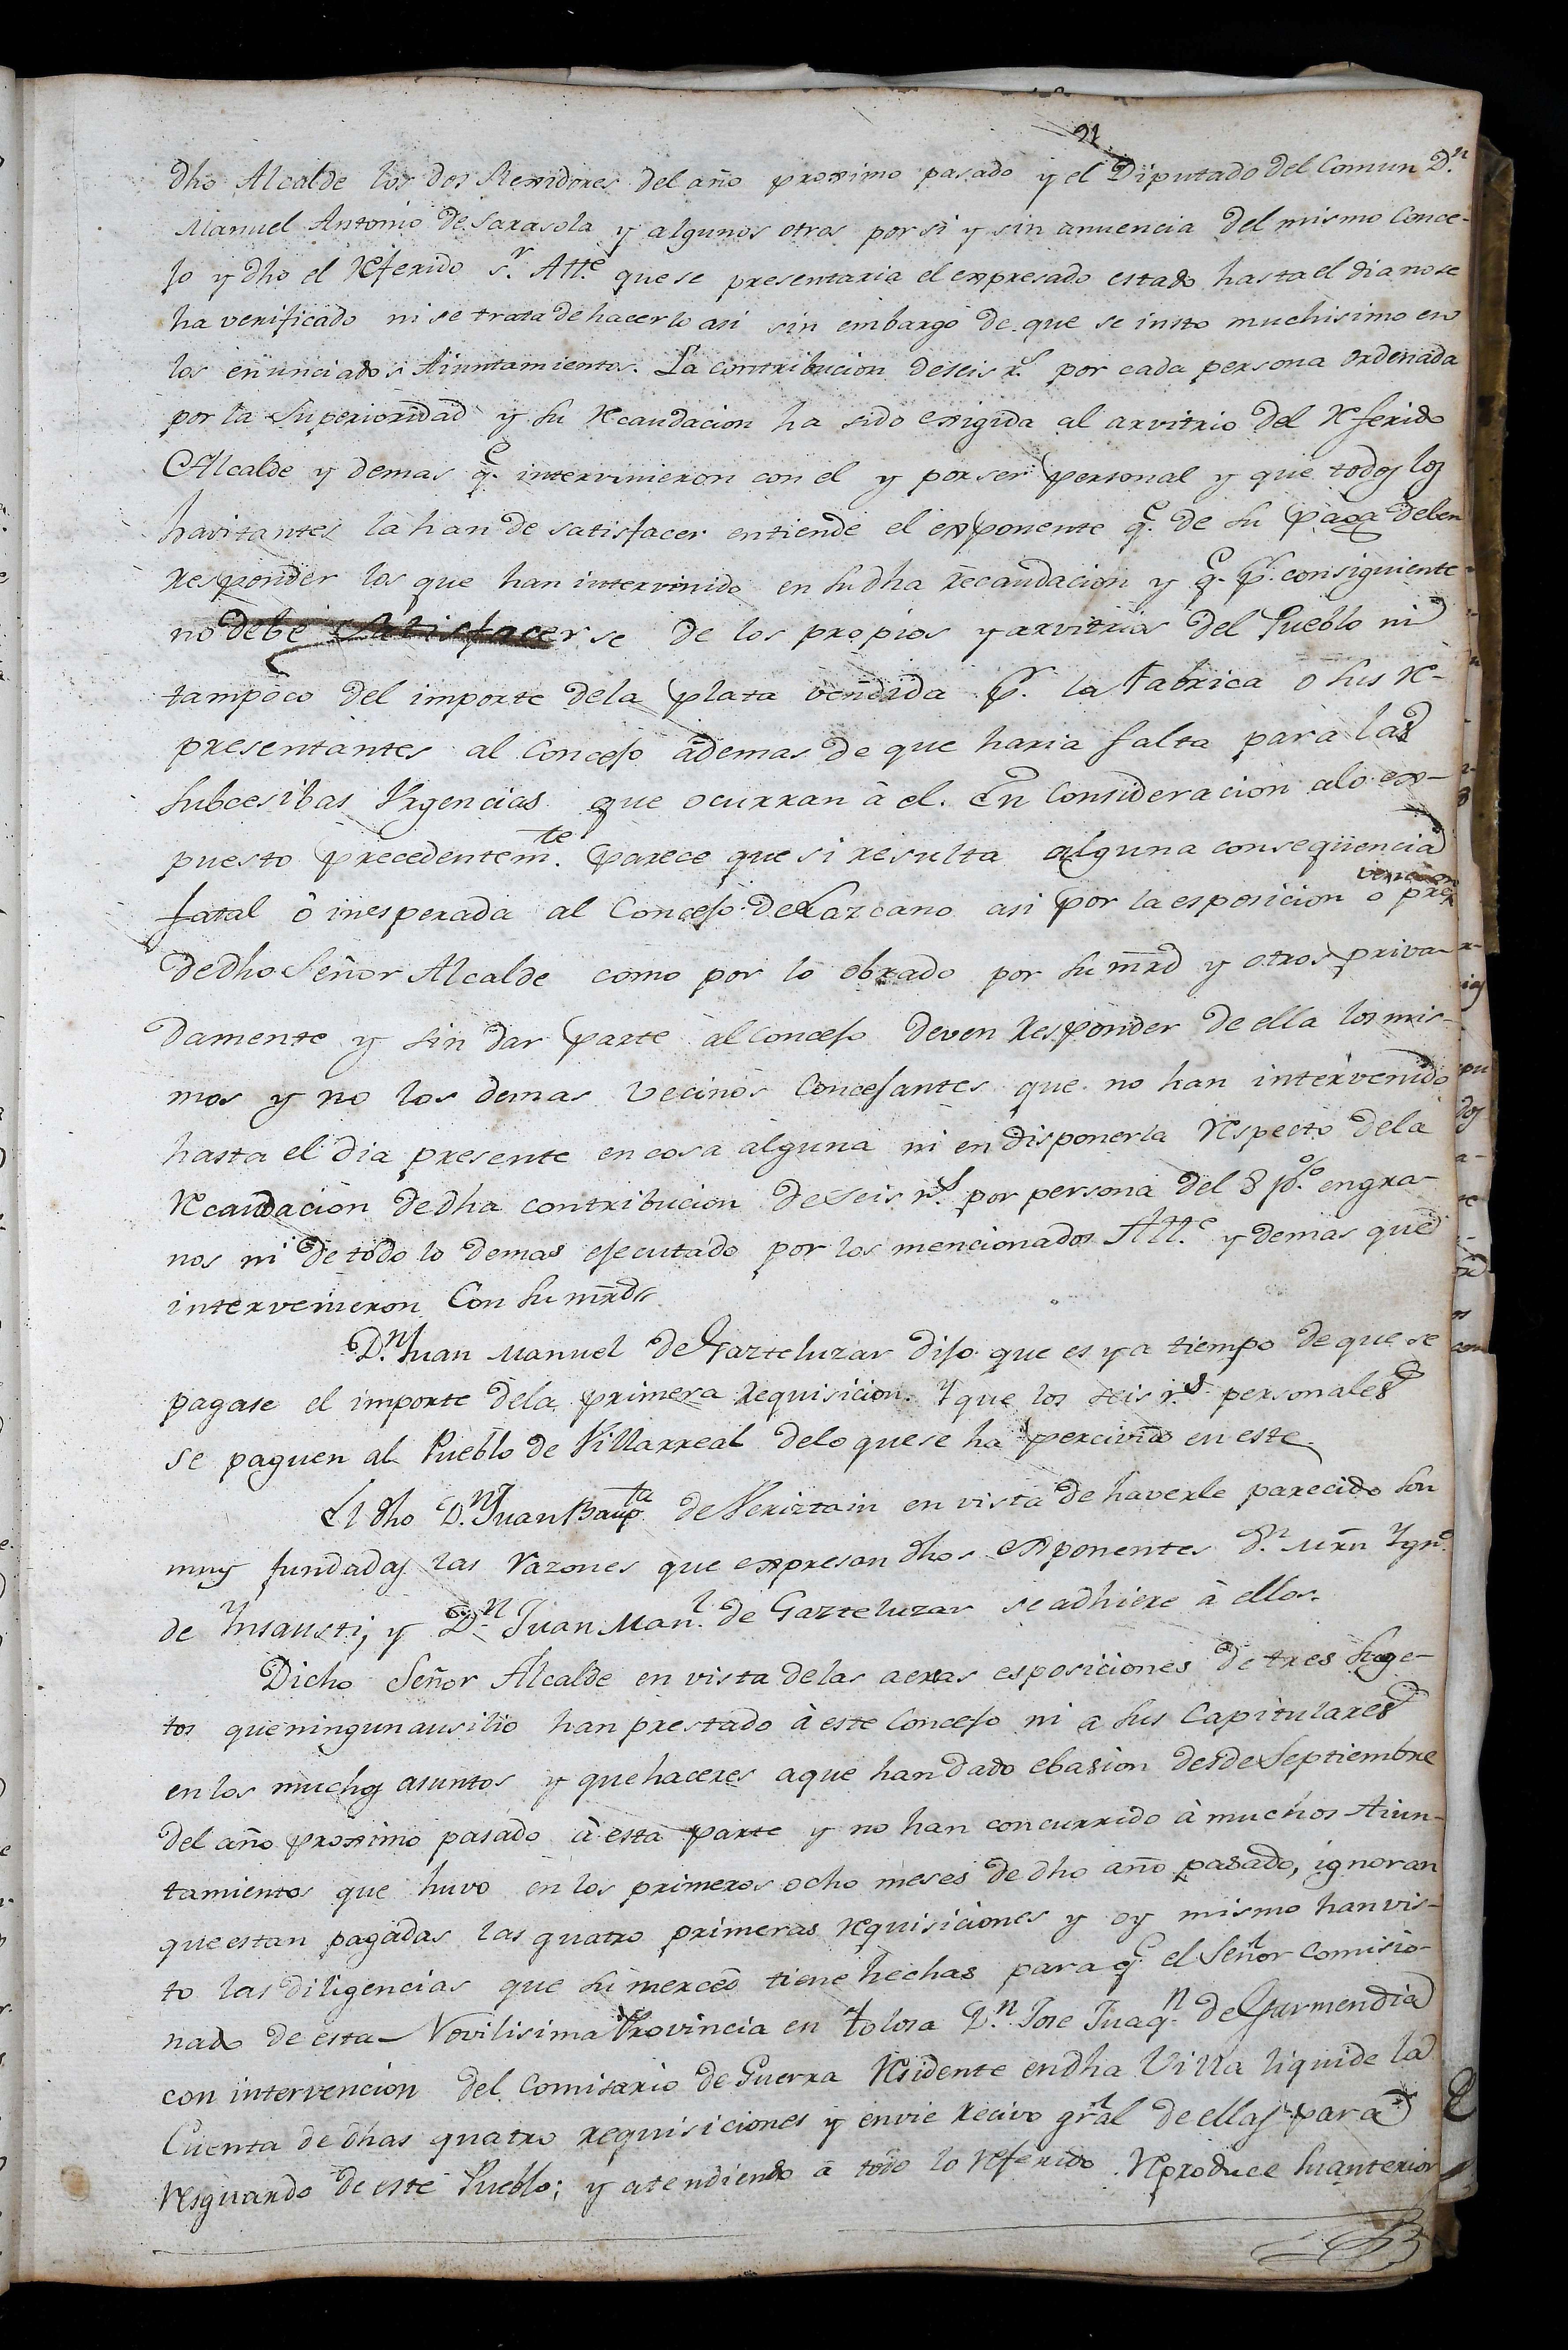 21
dho Alcalde los dos Rexidores del año proximo pasado y el Diputado del Comun D.n
Manuel Antonio de Sarasola y algunos otros por si y sin anuencia del mismo Conce-
jo y dho el referido S.r Alle que se presentaria el expresado estado hasta el dia no se
ha verificado ni se trata de hacerlo asi sin embargo de que se insto muchisimo en
los enunciados Aiuntamientos. La contribucion de seis r.s por cada persona ordenada
por la Superioridad y su recaudacion ha sido exigida al arvitrio del referido
Alcalde y demas q.e intervinieron con el y por ser personal y que todos los
havitantes la han de satisfacer entiende el exponente q.e de su paga deben
responder los que han intervinido en su dha recaudacion y q.e p.r consiguiente
no debe satisfacerse de los propios y arvitrios del Pueblo ni
tampoco del importe de la plata vendida p.r la Fabrica o sus re-
presentantes al Concejo ademas de que haria falta para las
subcesibas Urgencias que ocurran à el. En Consideracion a lo ex-
puesto precedentem.te parece que si resulta alguna conseqüencia
fatal ò inesperada al Concejo de Lazcano asi por la esposicion o pre
vencion
de dho Señor Alcalde como por lo obrado por su mrd y otros priva-
damente y sin dar parte al concejo deven responder de ella los mis-
mos y no los demas vecinos Concejantes que no han intervenido
hasta el dia presente en cosa alguna ni en disponerla respecto de la
recaudacion de dha contribucion de seis r.s por persona del 8 p.% en gra-
nos ni de todo lo demas ejecutado por los mencionados All.e y demas que
intervenieron con su mrd
D.n Juan Manuel de Gazteluzar dijo que es ya tiempo de que se
pagase el importe de la primera requisicion. Y que los seis r.s personales
se paguen al Pueblo de Villarreal de lo que se ha percivido en este.
El dho D.n Juan Baup.ta de Veriztain en vista de haverle parecido son
muy fundadas las razones que expresan dhos exponentes D.n Mrn Ygn.o
de Insausti; y D.n Juan Man.l de Gazteluzar se adhiere à ellos.
Dicho Señor Alcalde en vista de las aeras esposiciones de tres suge-
tos que ningun ausilio han prestado à este Concejo ni a sus Capitulares
en los muchos asuntos y quehaceres a que han dado ebasion desde Septiembre
del año proximo pasado à esta parte y no han concurrido à muchos Aiun-
tamientos que huvo en los primeros ocho meses de dho año pasado, ignoran
que estan pagadas las quatro primeras requisiciones y oy mismo han vis-
to las diligencias que su merced tiene hechas para q.e el Señor Comisio-
nado de esta Novilisima Provincia en Tolosa D.n Jose Juaq.n de Garmendia
con intervencion del Comisario de Guerra residente en dha Villa liquide la
Cuenta de dhas quatro requisiciones y envie recivo gral de ellas para
resguardo de este Pueblo; y atendiendo à todo lo referido reproduce su anterior